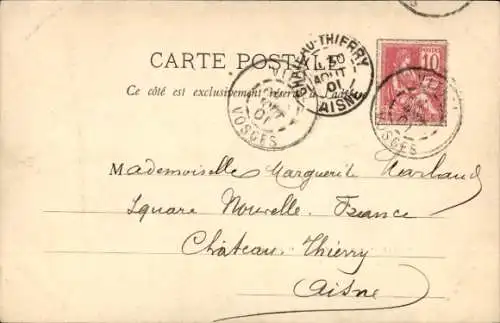 CARTE POSTALE
Ce côté est exclusivement réservé à l'adresse
CHATEAU-THIERRY
AOUT
01
AISNE
AOUT
01
VOSGES
10
VOSGES
Mademoiselle Marguerite
Square Nouvelle France
Château Thierry
Aisne